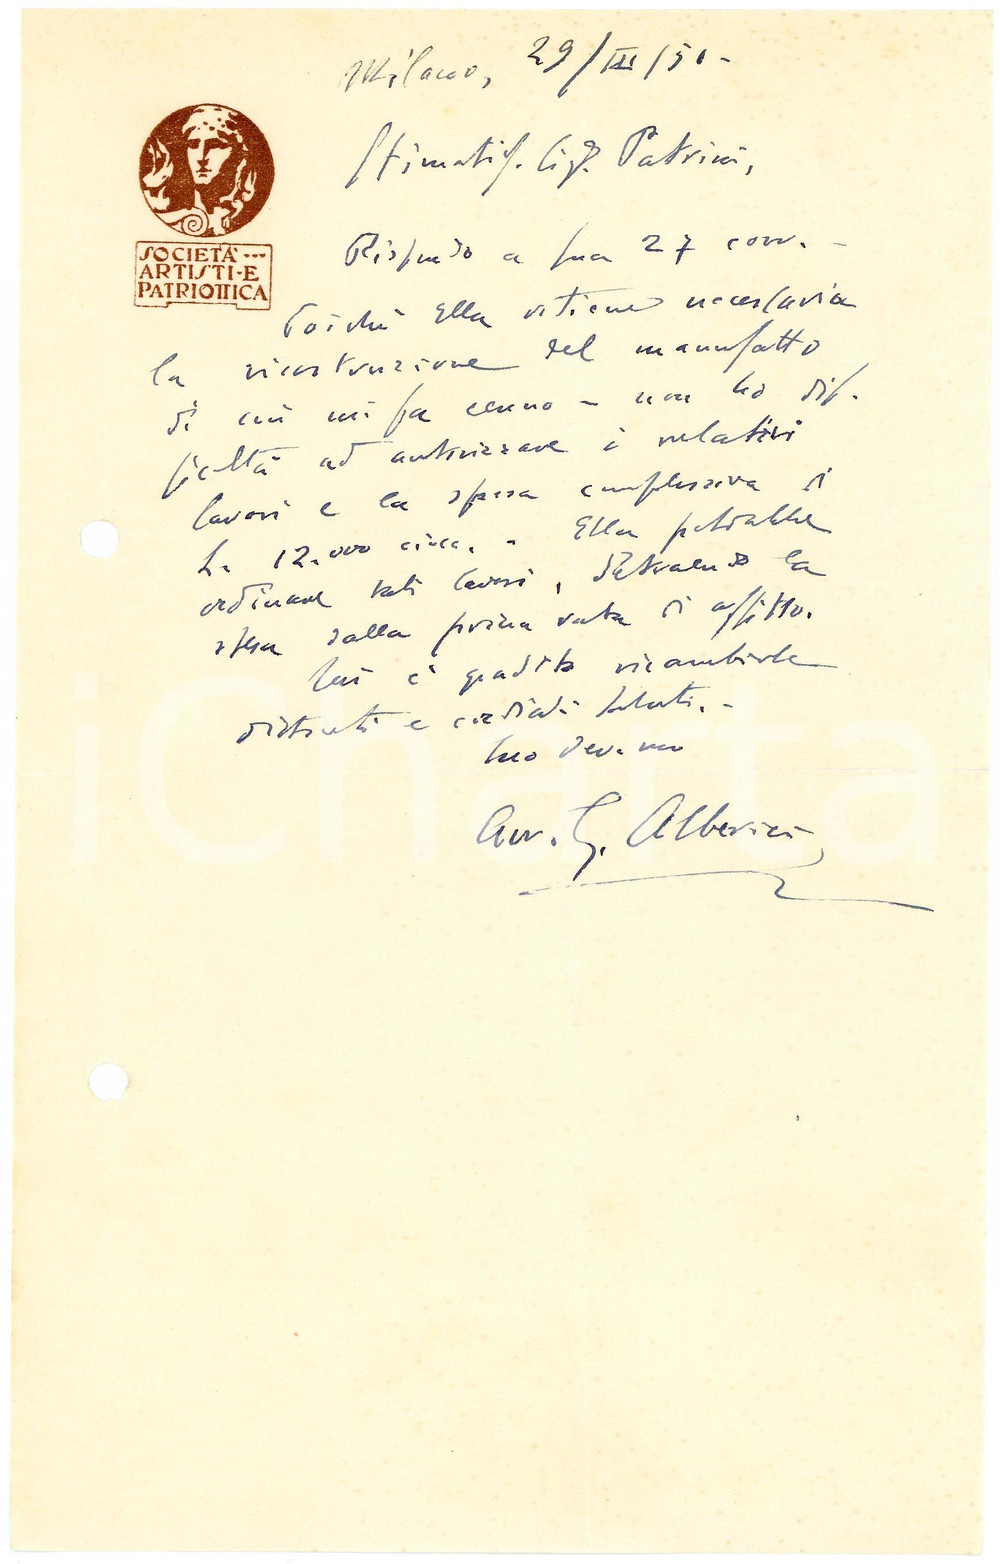 Milano, 29/III/51-
SOCIETÀ ---
ARTISTI-E
PATRIOTTICA
Stimatis. Sig. Patrini,
Rispondo a sua 27 corr. -
Poichè Ella ritiene necessaria
la ricostruzione del manufatto
di cui mi fa cenno - non ho dif-
ficoltà ad autorizzare i relativi
lavori e la spesa complessiva di
L. 12.000 circa. - Ella potrebbe
ordinare tali lavori, detraendo la
spesa dalla prima rata di affitto.
Mi è gradito ricambiarle
distinti e cordiali saluti. -
Suo dev.mo
Avv. G. Alberici
iCharta